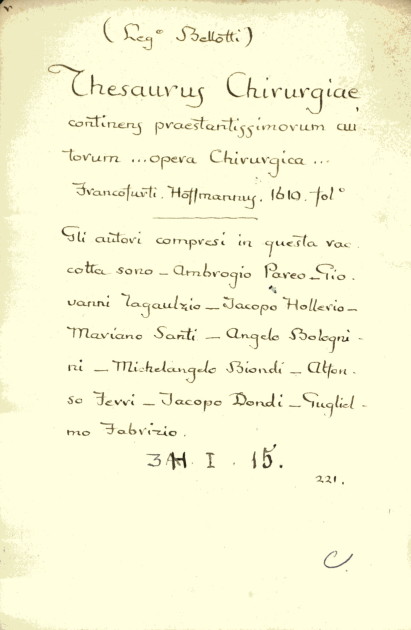 (Leg° Bellotti)
Thesaurus Chirurgiae,
continens praestantissimorum au-
torum ... opera Chirurgica ...
Francofurti. Hoffmannus. 1610. fol°
Gli autori compresi in questa rac-
colta sono - Ambrogio Pareo - Gio-
vanni Tagaulzio - Jacopo Hollerio -
Mariano Santi - Angelo Bologni-
ni - Michelangelo Biondi - Alfon-
so Ferri - Jacopo Dondi - Gugliel-
mo Fabrizio.
I. 15.
221.
C